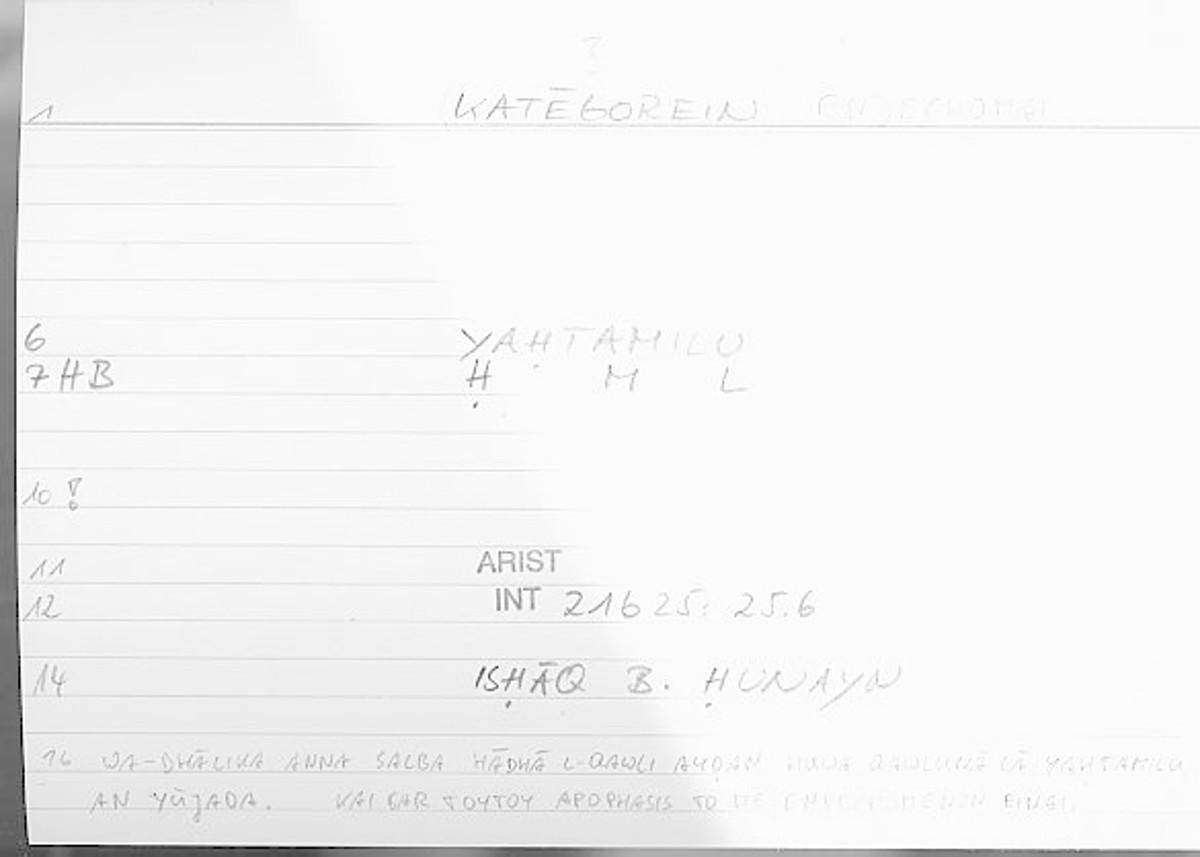 ?
1 KATĒGOREIN ENDECHOMAI
6 YAḤTAMILU
7 HB Ḥ M L
10 !
11 ARIST
12 INT 21b 25: 25.6
14 ISḤĀQ B. ḤUNAYN
16 WA-DHĀLIKA ANNA SALBA HĀDHĀ L-QAWLI AYḌAN HUWA QAWLUNĀ LĀ YAḤTAMILU
AN YŪǦADA. KAI GAR TOYTOY APOPHASIS TO ME ENDECHOMENON EINAI.